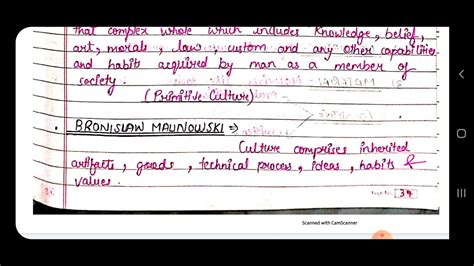 that complex whole which includes knowledge, belief,
art, morals, law, custom and any other capabilities
and habit acquired by man as a member of
society.
(Primitive Culture)
• BRONISLAW MALINOWSKI ⇒
Culture comprises inherited
artifacts, goods, technical process, ideas, habits &
values.
Page No. 34
Scanned with CamScanner